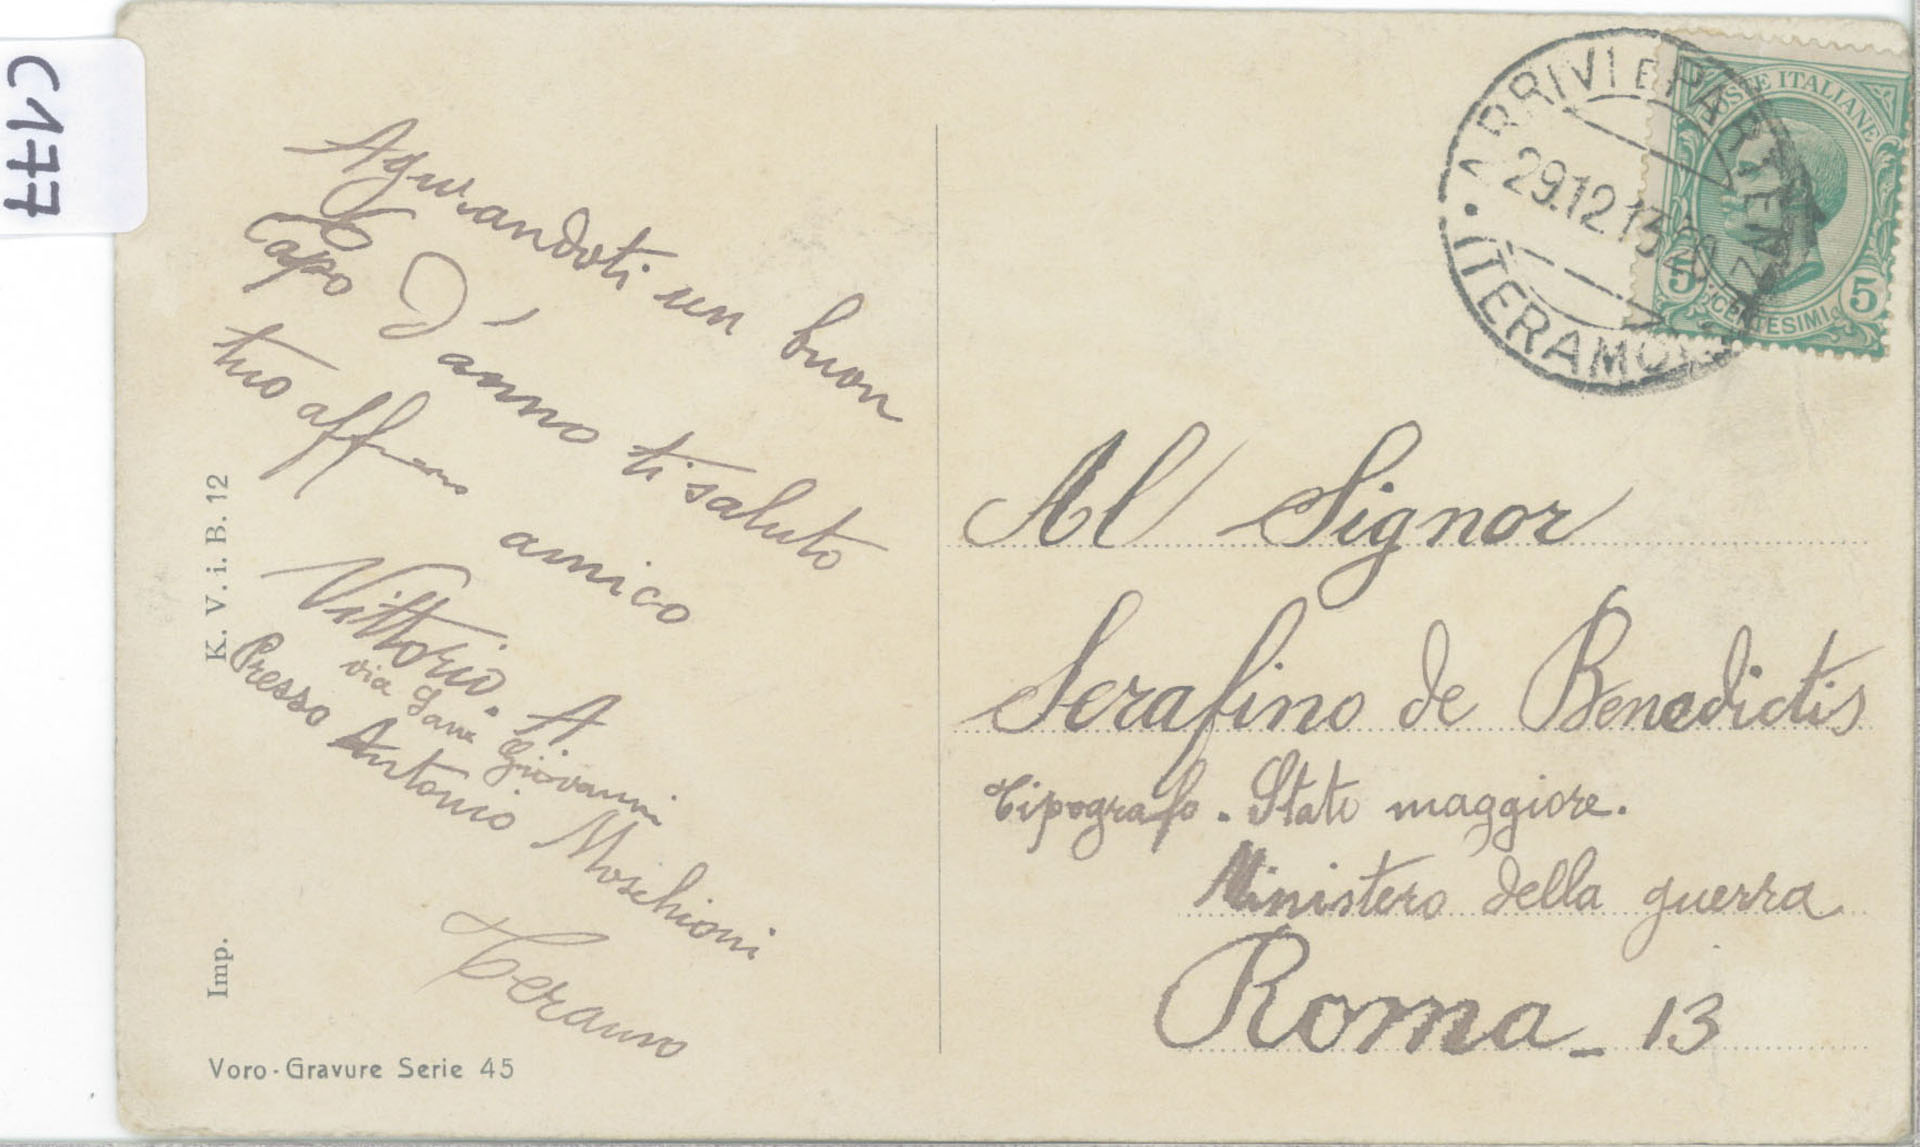 C177
Agurandoti un buon
Capo D'anno ti saluto
tuo aff.mo amico
Vittorio. A
via San Giovanni
Presso Antonio Moschioni
Teramo
K. V. i. B. 12
Imp.
Voro-Gravure Serie 45
ARRIVI E PARTENZE
29.12.13.20
TERAMO
POSTE ITALIANE
5 5
CENTESIMI
Al Signor
Serafino de Benedictis
Tipografo. Stato maggiore.
Ministero della guerra
Roma - 13